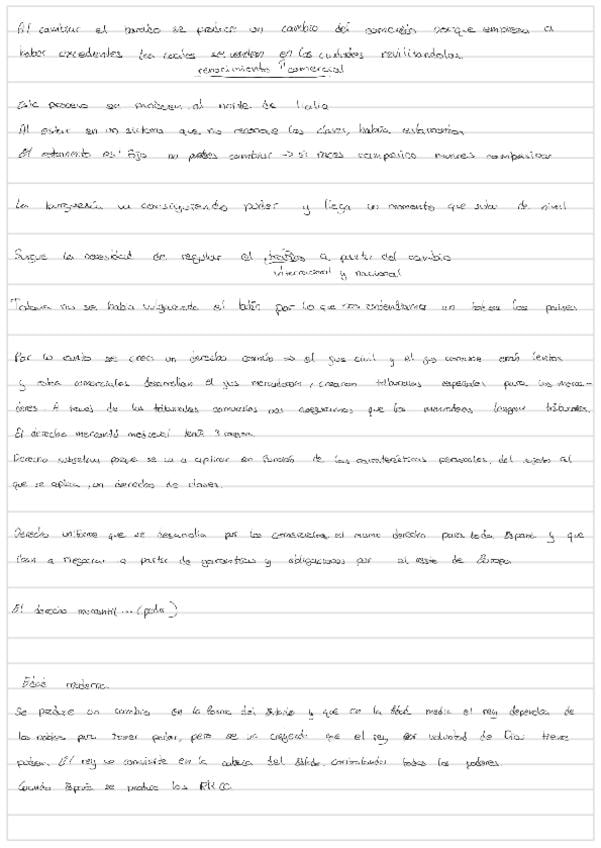 Al cambiar el se produce un cambio del comercio porque empieza a
haber excedentes los cuales se venden en las ciudades revitilizandolas
renacimiento "comercial
Este proceso se produce al norte de Italia
Al estar en un sistema que no reconoce las clases, había estamentos
El estamento es fijo no puedes cambiar -> si naces campesino mueres campesino
La burguesía va consiguiendo poder y llega un momento que sube de nivel
Surge la necesidad de regular el tráfico a partir del cambio
internacional y nacional
Todavía no se había el latín por lo que nos entendíamos en todos los países
Por lo tanto se crea un derecho común -> el ius civil y el ius eran lentos
y estos comerciales desarrollan el ius mercatorum, crearon tribunales especiales para los merca-
deres A través de los tribunales nos aseguramos que los mercaderes tengan tribunales.
El derecho mercantil medieval tenía 3
Derecho subjetivo porque se va a aplicar en función de las características personales, del sujeto al
que se aplica, un derecho de clases.
Derecho uniforme que se desarrolla por los el mismo derecho para toda España y que
iban a negociar a partir de garantías y obligaciones por el resto de Europa
El derecho mercantil ... (
Edad moderna.
Se produce un cambio en la forma del Estado y que en la Edad media el rey dependía de
los nobles para tener poder, pero se va creyendo que el rey por voluntad de Dios tiene
poder. El rey se convierte en la cabeza del Estado. controlando todos los poderes.
Cuando España se produce los RR CC.